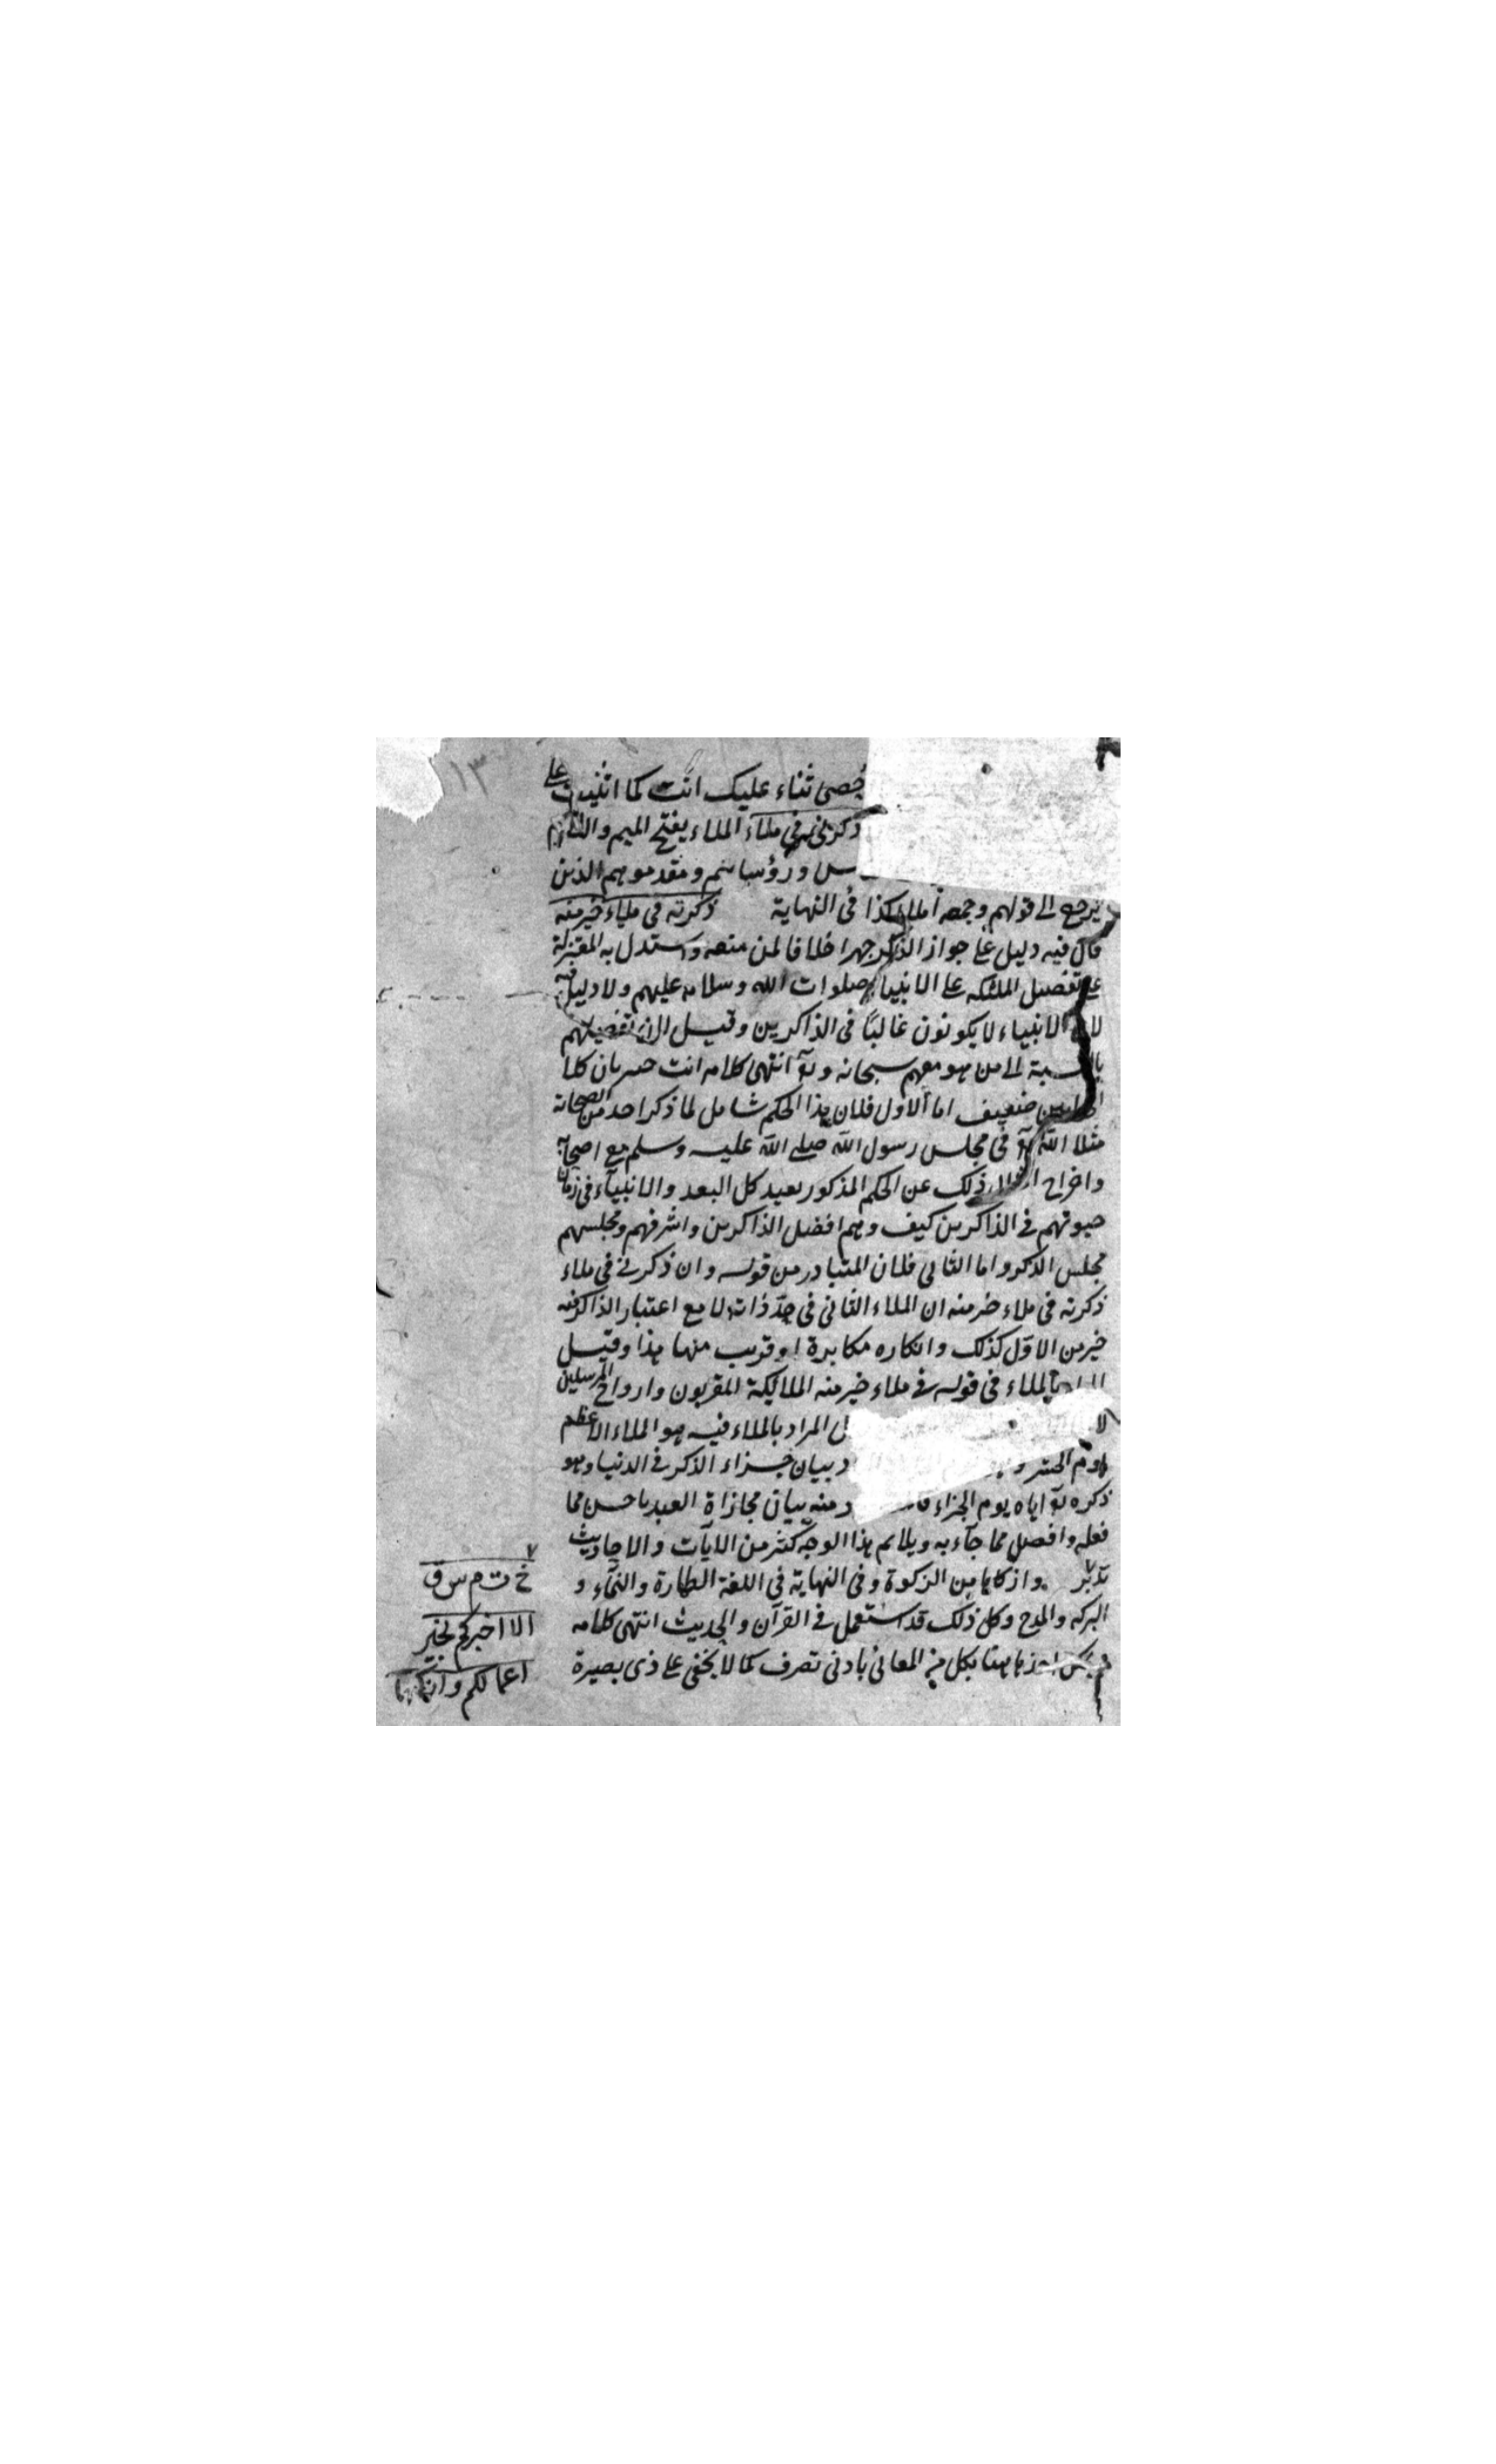 ١٣
حصى ثناء عليك انت كما اثنيت على
ذكرنى فى ملاء الملاء بفتح الميم واللام
س ورؤسائهم ومقدموهم الذين
يرجع الى قولهم وجمعه املاء كذا فى النهاية ذكرته فى ملاء خير منه
قال فيه دليل على جواز الذكر جهرا خلافا لمن منعه واستدل به المعتزلة
على تفضيل الملئكة على الانبياء صلوات الله وسلامه عليهم ولا دليل فيه
لان الانبياء لا يكونون غالبًا فى الذاكرين وقيل تفضيلهم
بالنسبة الى من هو معهم سبحانه وتع انتهى كلامه انت خبير بان كلا
ضعيف اما الاول فلان هذا الحكم شامل لما ذكر احد من الصحابة
مثلا الله تع فى مجلس رسول الله صلى الله عليه وسلم مع اصحابه
واخراج ذلك عن الحكم المذكور بعيد كل البعد والانبياء فى زمان
حيوتهم فى الذاكرين كيف وهم افضل الذاكرين واشرفهم ومجلسهم
مجلس الذكر واما الثانى فلان المتبادر من قوله وان ذكرنى فى ملاء
ذكرته فى ملاء خير منه ان الملاء الثانى فى حد ذاته لا مع اعتبار الذاكر فيه
خير من الاول كذلك وانكاره مكابرة او قريب منها هذا وقيل
المراد بالملاء فى قوله فى ملاء خير منه الملائكة المقربون وارواح المرسلين
لا المراد بالملاء فيه هو الملاء الاعظم
يوم الحشر د بيان جزاء الذكر فى الدنيا وهو
ذكره تع اياه يوم الجزاء د منه بيان مجازاة العبد باحسن مما
فعله وافضل مما جآء به ويلائم هذا الوجه كثير من الايآت والاحاديث
تدبر وازكاها من الزكوة وفى النهاية فى اللغة الطهارة والنمآء و
البركه والمدح وكل ذلك قد استعمل فى القرآن والحديث انتهى كلامه
ويمكن اخذها ههنا بكل من المعانى بادنى تصرف كما لا يخفى على ذى بصيرة
خ ت م س ق
الا اخبركم بخير
اعمالكم وازكاها